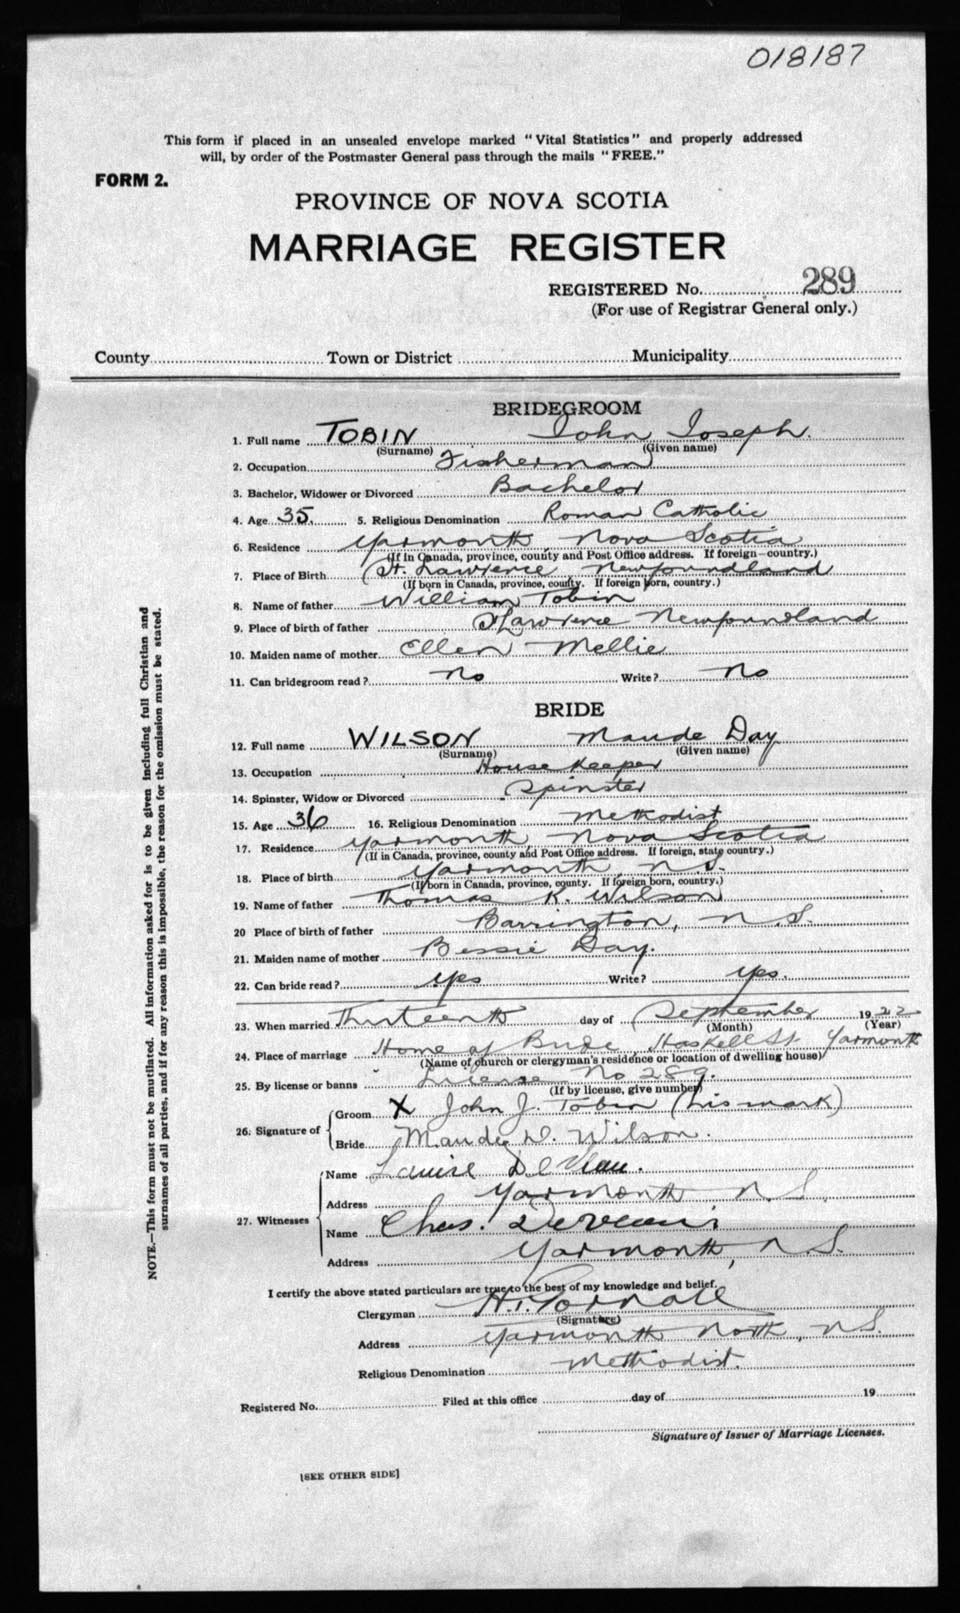 018187
This form if placed in an unsealed envelope marked "Vital Statistics" and properly addressed
will, by order of the Postmaster General pass through the mails "FREE."
FORM 2.
PROVINCE OF NOVA SCOTIA
MARRIAGE REGISTER
REGISTERED No. 289
(For use of Registrar General only.)
County Town or District Municipality
BRIDEGROOM
1. Full name TOBIN John Joseph.
(Surname) (Given name)
2. Occupation Fisherman
3. Bachelor, Widower or Divorced Bachelor
4. Age 35. 5. Religious Denomination Roman Catholic
6. Residence Yarmouth Nova Scotia
(If in Canada, province, county and Post Office address. If foreign—country.)
7. Place of Birth St. Lawrence Newfoundland
(If born in Canada, province, county. If foreign born, country.)
8. Name of father William Tobin
9. Place of birth of father St Lawrence Newfoundland
10. Maiden name of mother Ellen Mellie
11. Can bridegroom read? No Write? No
BRIDE
12. Full name WILSON Maude Day
(Surname) (Given name)
13. Occupation House Keeper
14. Spinster, Widow or Divorced Spinster
15. Age 36 16. Religious Denomination Methodist
17. Residence Yarmouth, Nova Scotia
(If in Canada, province, county and Post Office address. If foreign, state country.)
18. Place of birth Yarmouth N.S.
(If born in Canada, province, county. If foreign born, country.)
19. Name of father Thomas K. Wilson
20 Place of birth of father Barrington, N.S.
21. Maiden name of mother Bessie Day.
22. Can bride read? yes Write? yes.
23. When married Thirteenth day of September 1922
(Month) (Year)
24. Place of marriage Home of Bride Haskell St Yarmouth
(Name of church or clergyman's residence or location of dwelling house)
25. By license or banns License No 289.
(If by license, give number)
26. Signature of Groom X John J. Tobin (his mark)
Bride Maude D. Wilson.
27. Witnesses Name Louise DeVeau.
Address Yarmouth N.S.
Name Chas.
Address Yarmouth, N.S.
I certify the above stated particulars are true to the best of my knowledge and belief.
Clergyman H.
(Signature)
Address Yarmouth North, N.S.
Religious Denomination Methodist.
Registered No. Filed at this office day of 19
Signature of Issuer of Marriage Licenses.
[SEE OTHER SIDE]
NOTE.—This form must not be mutilated. All information asked for is to be given including full Christian and
surnames of all parties, and if for any reason this is impossible, the reason for the omission must be stated.